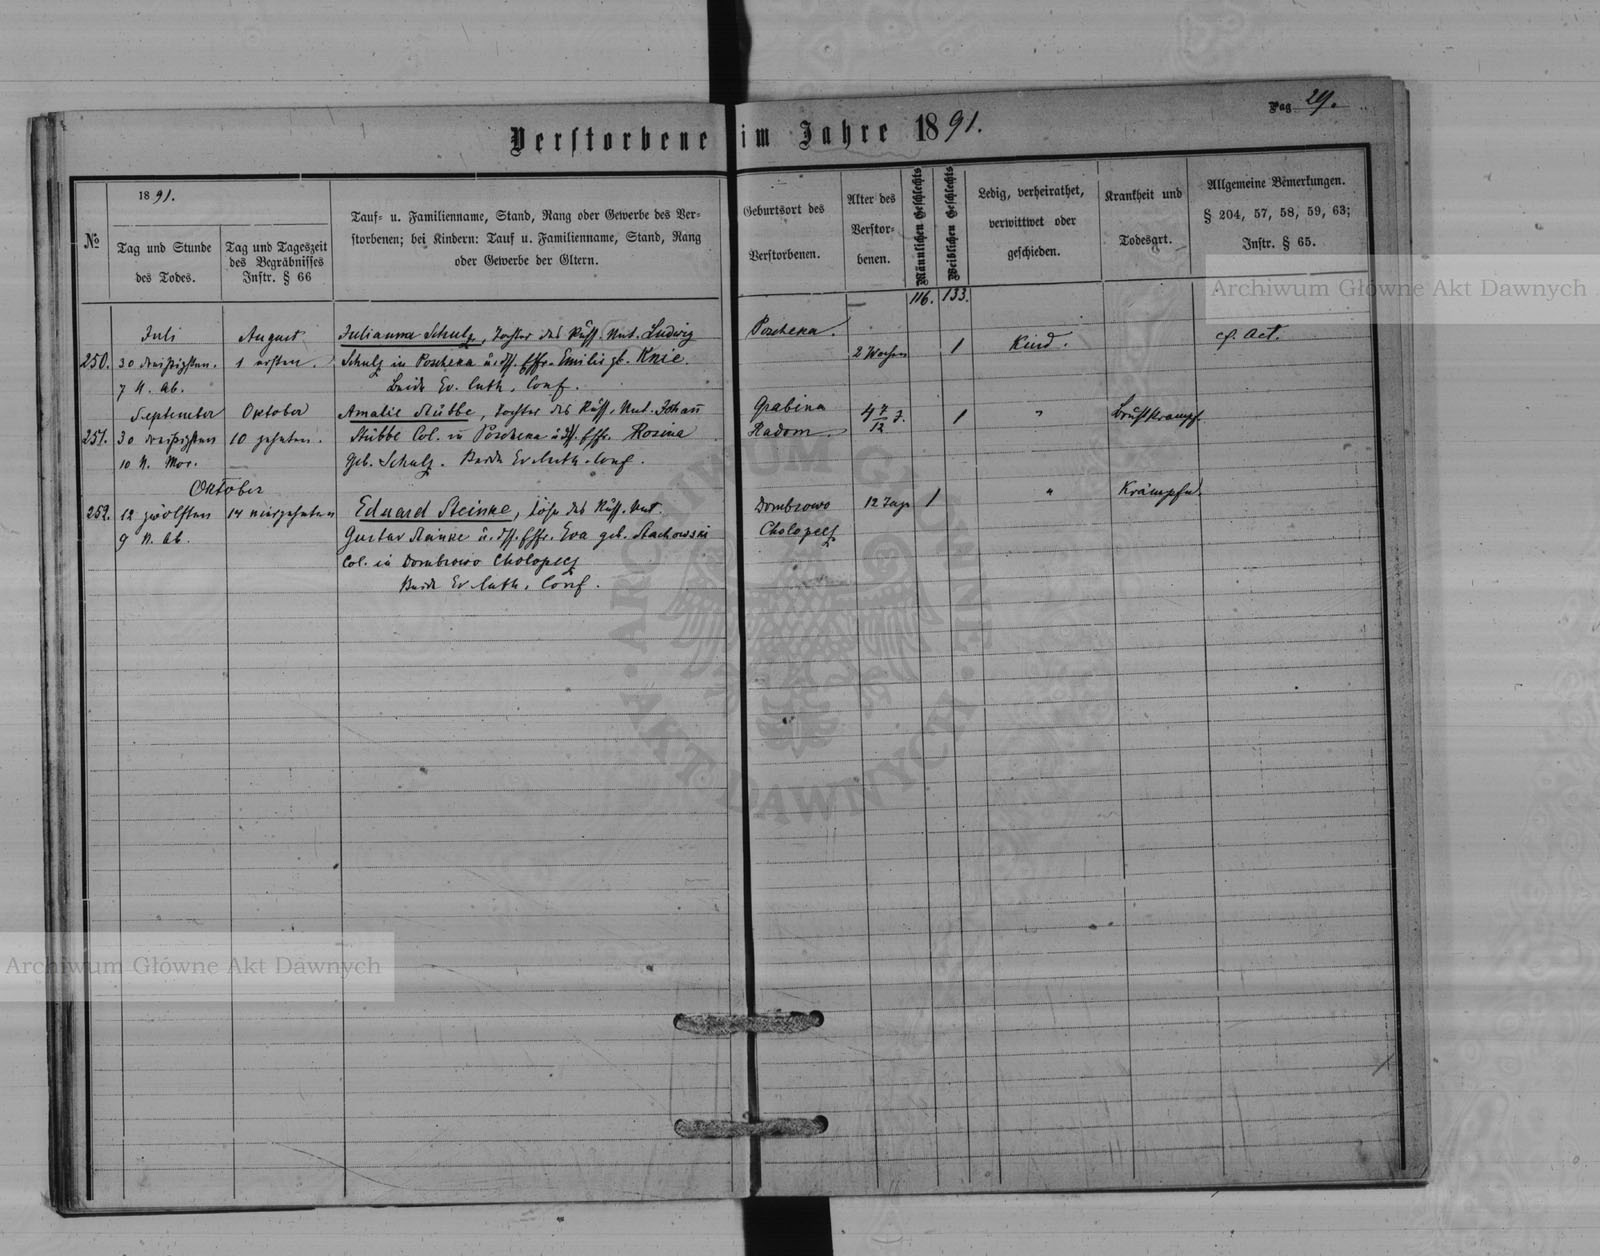 Pag 29.
Verstorbene im Jahre 1891.
№
1891.
Tag und Stunde
des Todes.
Tag und Tageszeit
des Begräbnisses
Instr. § 66
Tauf- u. Familienname, Stand, Rang oder Gewerbe des Ver-
storbenen; bei Kindern: Tauf u. Familienname, Stand, Rang
oder Gewerbe der Eltern.
Geburtsort des
Verstorbenen.
Alter des
Verstor-
benen.
Männlichen Geschlechts
Weiblichen Geschlechts
Ledig, verheirathet,
verwittwet oder
geschieden.
Krankheit und
Todesart.
Allgemeine Bemerkungen.
§ 204, 57, 58, 59, 63;
Instr. § 65.
116. 133.
Juli August Julianna Schulz, Tochter des Russ. Unt. Ludwig Poscheka. cf. Act.
250. 30 dreißigsten. 1 ersten. Schulz in Poscheka u. dss. Ehfr. Emilie gb. Knie. 2 Wochen 1 Kind.
7 U. Ab. Beide Ev. luth. Conf.
September Oktober Amalie Stübbe, Tochter des Russ. Unt. Johann Grabina 4 7/12 J. 1 " Brustkrampf.
251. 30 dreißigsten 10 zehnten. Stübbe Col. in Poscheka u. dss. Ehfr. Rosina Radom.
10 U. Mor. geb. Schulz. Beide Ev. luth. Conf.
Oktober
252. 12 zwölften 14 vierzehnten Eduard Steinke, Sohn des Russ. Unt. Dombrowo 12 Tage 1 " Krämpfe.
9 U. Ab. Gustav Steinke u. dss. Ehfr. Eva geb. Stachowski Cholopecz
Col. in Dombrowo Cholopecz
Beide Ev. luth. Conf.
Archiwum Główne Akt Dawnych
Archiwum Główne Akt Dawnych
ARCHIWUM GŁÓWNE
AKT DAWNYCH